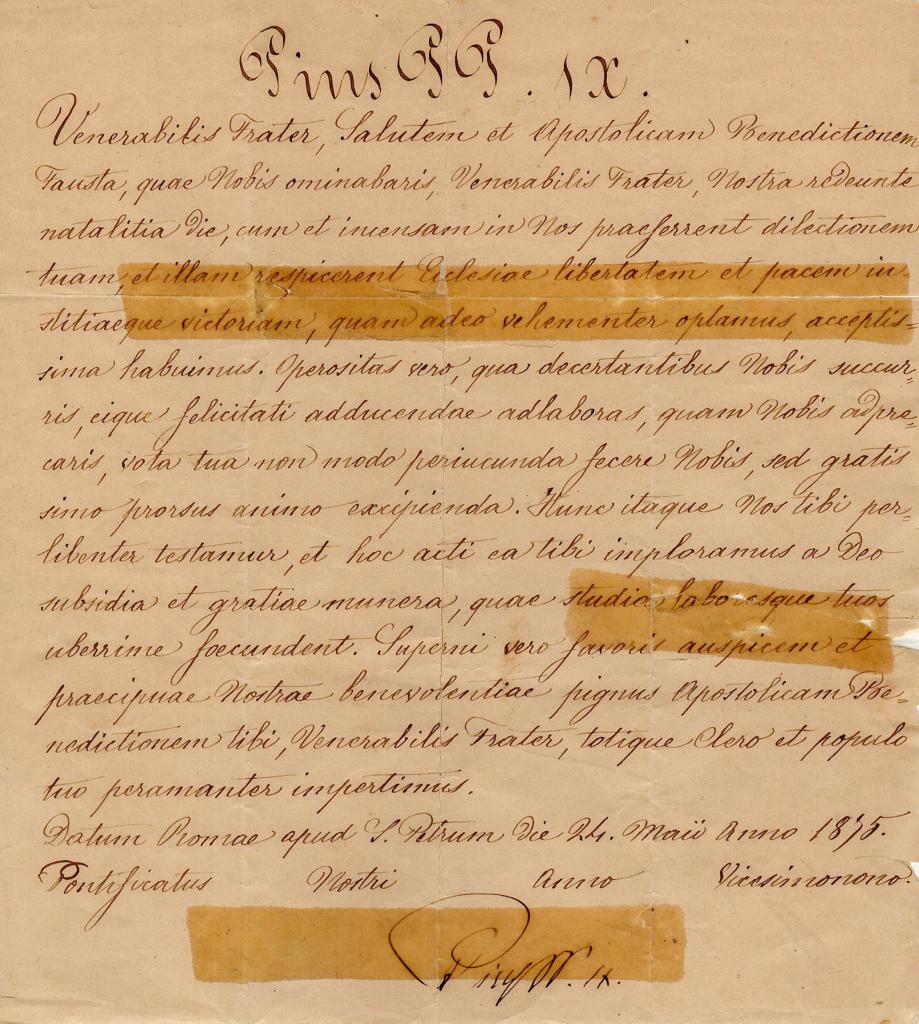 Pius PP. IX.
Venerabilis Frater, Salutem et Apostolicam Benedictionem
Fausta, quae Nobis ominabaris, Venerabilis Frater, Nostra redeunte
natalitia die, cum et incensam in Nos praeferrent dilectionem
tuam, et illam respicerent Ecclesiae libertatem et pacem iu-
stitiaeque victoriam, quam adeo vehementer optamus, acceptis-
sima habuimus. Operositas vero, qua decertantibus Nobis succur-
ris, eique felicitati adducendae adlaboras, quam Nobis adpre-
caris, vota tua non modo periucunda fecere Nobis, sed gratis
simo prorsus animo excipienda. Hunc itaque Nos tibi per-
libenter testamur, et hoc acti ea tibi imploramus a Deo
subsidia et gratiae munera, quae studia laboresque tuos
uberrime foecundent. Superni vero favoris auspicem et
praecipuae Nostrae benevolentiae pignus Apostolicam Be-
nedictionem tibi, Venerabilis Frater, totique Clero et populo
tuo peramanter impertimus.
Datum Romae apud S. Petrum die 24. Maii Anno 1875.
Pontificatus Nostri Anno Vicesimonono.
Pius PP. IX.